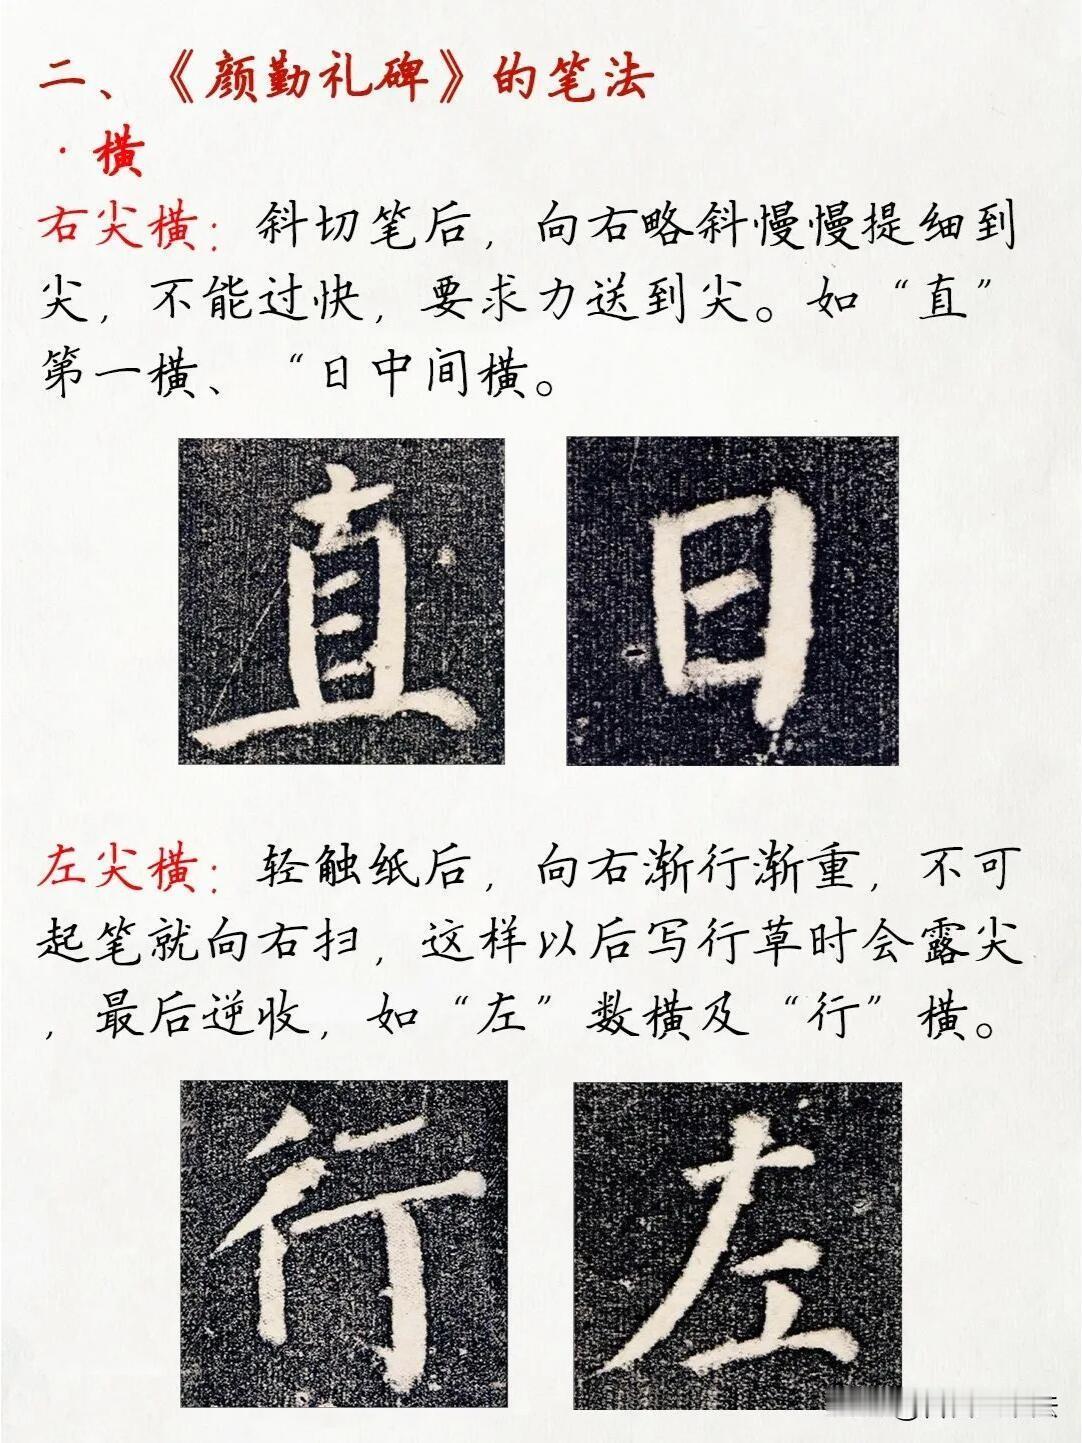 二、《颜勤礼碑》的笔法
·横
右尖横：斜切笔后，向右略斜慢慢提细到
尖，不能过快，要求力送到尖。如“直”
第一横、“日中间横。
直 日
左尖横：轻触纸后，向右渐行渐重，不可
起笔就向右扫，这样以后写行草时会露尖
，最后逆收，如“左”数横及“行”横。
行 左